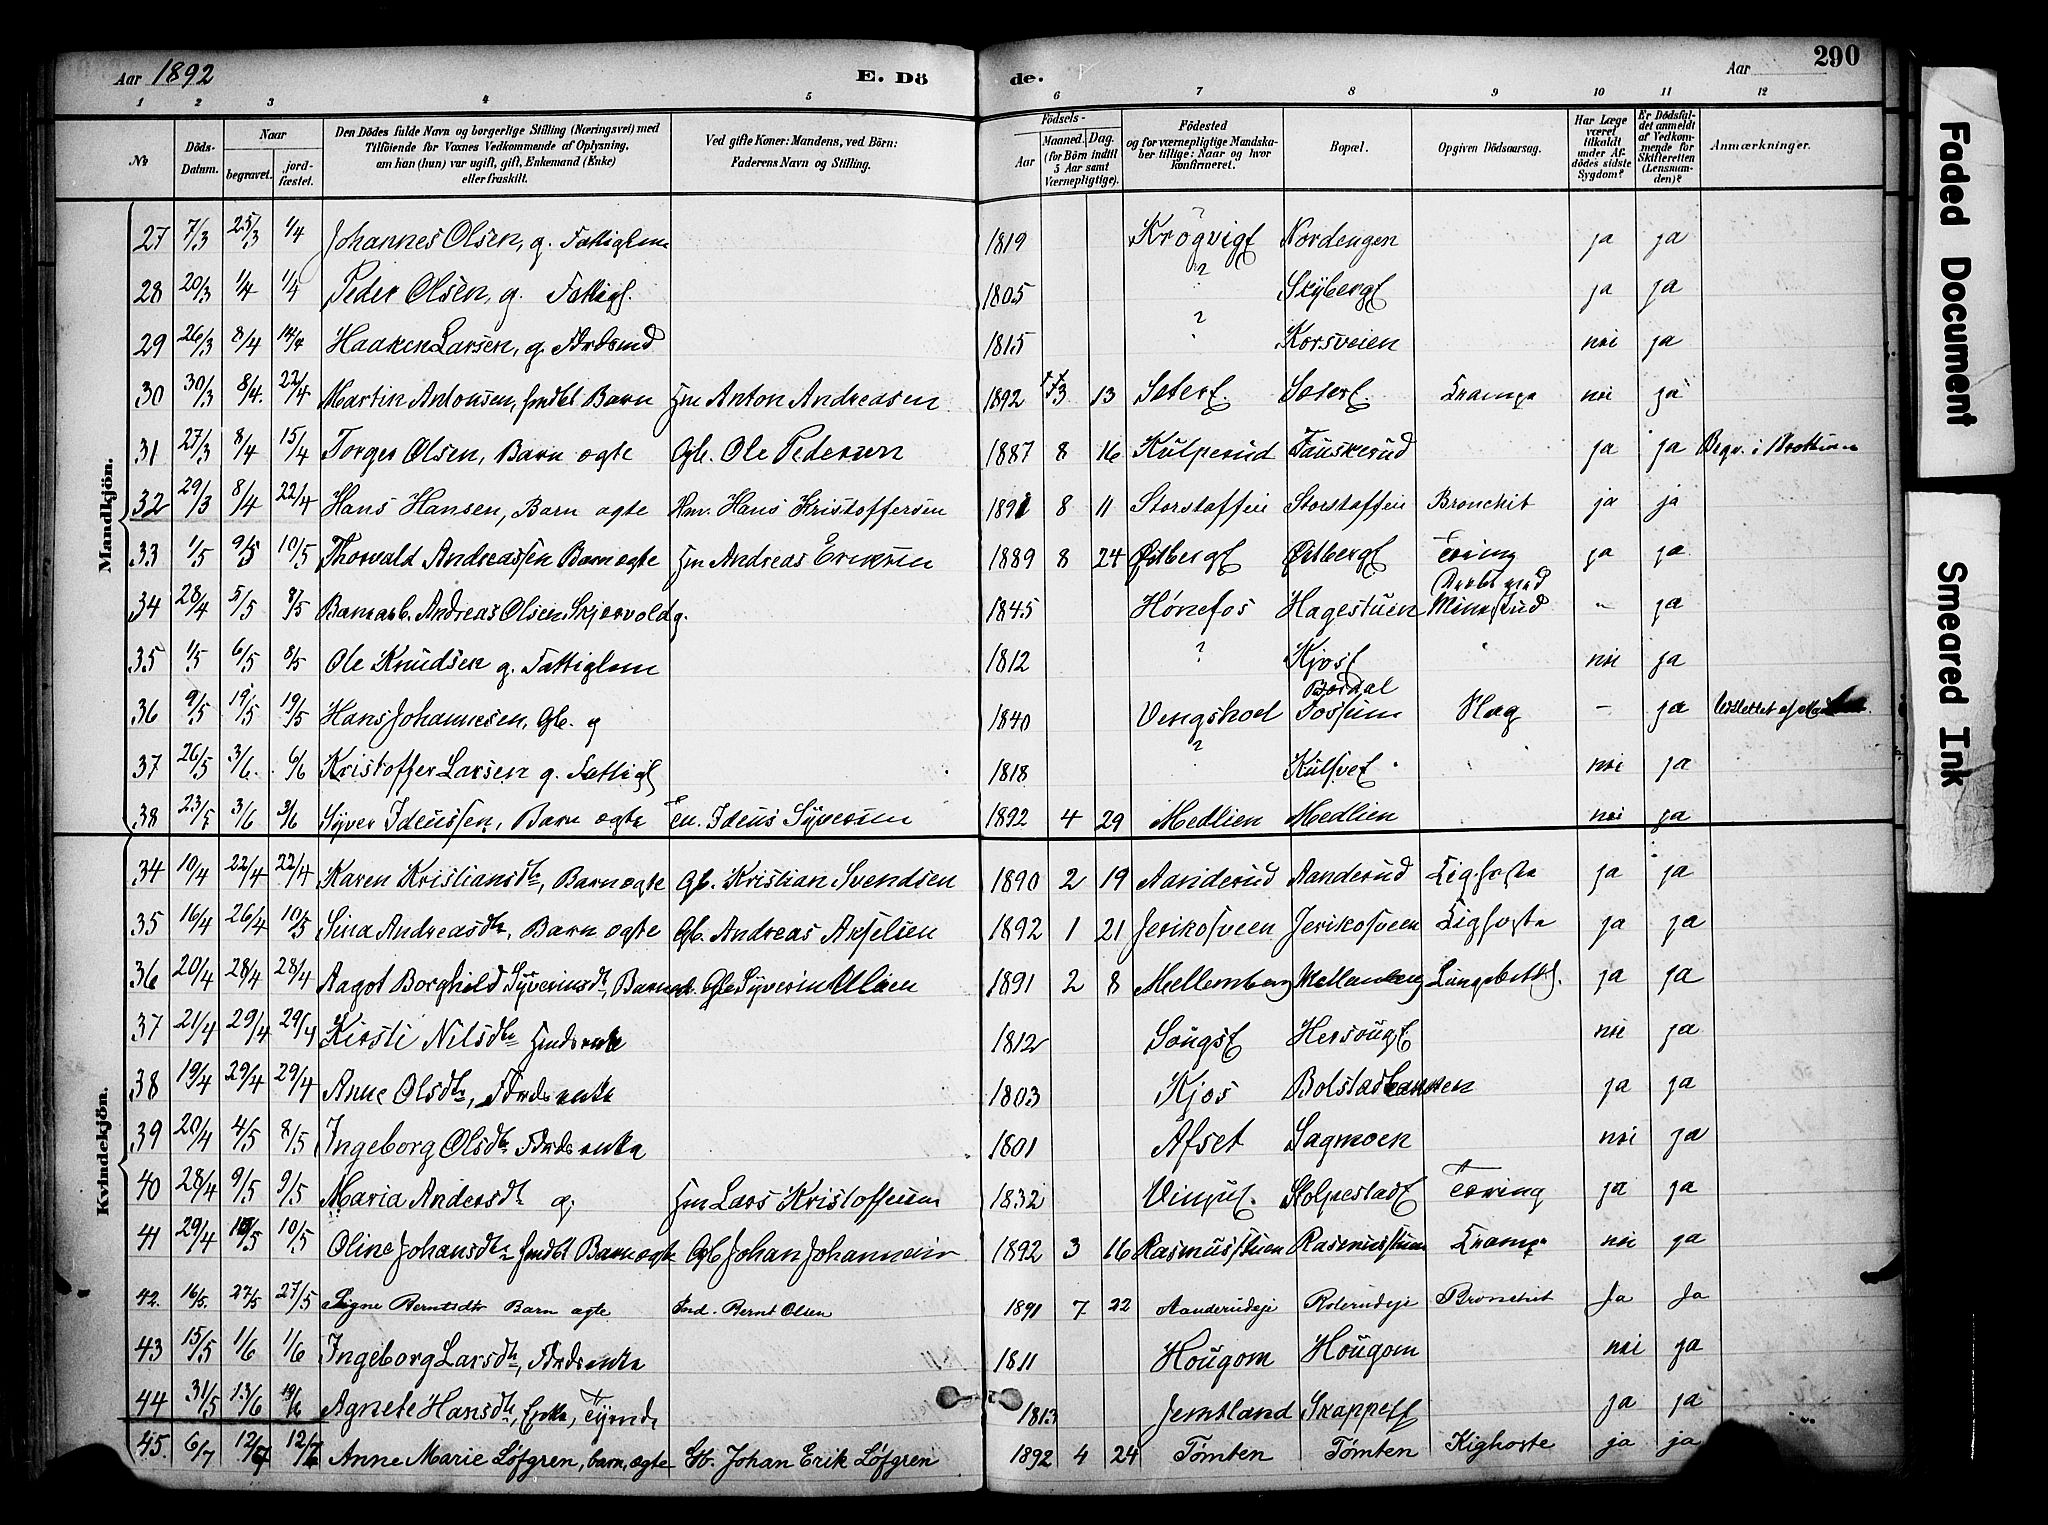 Aar 1892 E. Dö de. Aar 290
1 2 3 4 5 6 7 8 9 10 11 12
№ Döds-Datum. Naar begravet. jordfæstet. Den Dödes fulde Navn og borgerlige Stilling (Næringsvei) med Tilföiende for Voxnes Vedkommende af Oplysning, om han (hun) var ugift, gift, Enkemand (Enke) eller fraskilt. Ved gifte Koner: Mandens, ved Börn: Faderens Navn og Stilling. Födsels- Aar Maaned. Dag. (for Börn indtil 5 Aar samt Værnepligtige). Födested og for værnepligtige Mandskaber tillige: Naar og hvor konfirmeret. Bopæl. Opgiven Dödsaarsag. Har Læge været tilkaldt under Afdödes sidste Sygdom? Er Dödsfaldet anmeldt af Vedkommende for Skifteretten (Lensmanden)? Anmærkninger.
Mandkjön.
27 7/3 25/3 1/4 Johannes Olsen, g. Fattiglem 1819 Krogvigf Nordengen ja ja
28 20/3 1/4 1/4 Peder Olsen, g. Fattigl. 1805 ? Skybergf ja ja
29 26/3 8/4 14/4 Haaken Larsen, g. Fdrdsmd 1815 ? Korsveien nei ja
30 30/3 8/4. 22/4 Martin Antonsen, Barn Hm Anton Andreasen 1892 3 13 Seterf. Seterf. Krampe nei ja
31 27/3 8/4 15/4 Torger Olsen, Barn ægte Gb. Ole Pedersen 1887 8 16 Kulperud Fauskerud ja ja Begr. i Brottum
32 29/3 8/4 22/4 Hans Hansen, Barn ægte Hm. Hans Kristoffersen 1891 8 11 Storstaffen Storstaffen Bronchit ja ja
33 1/5 9/5 10/5 Thorvald Andreassen Barn ægte Hm Andreas Eriksen 1889 8 24 Østbergf Østbergf Tæring ja ja
34 28/4 5/5 8/5 Banearb. Andreas Olsen Skjervold g. 1845 Hønefos Hagestuen Dræbt ved Mineskud - ja
35 1/5 6/5 8/5 Ole Knudsen g. Fattiglem 1812 ? Kjosf nei ja
36 9/5 19/5 19/5 Hans Johannesen, Gb. g 1840 Vengshoel Bordal Fossum Slag - ja
37 26/5 3/6. 6/6 Kristoffer Larsen g. Fattigl 1818 ? Kulsvef nei ja
38 23/5 3/6 3/6 Syver Ideussen, Barn ægte En. Ideus Syversen 1892 4 29 Medlien Medlien nei ja
Kvindekjön.
34 10/4 22/4 22/4 Karen Kristiansdtr, Barn ægte Gb. Kristian Svendsen 1890 2 19 Aanderud Aanderud Kighoste ja ja
35 16/4 26/4 10/5 Sina Andreasdtr, Barn ægte Gb. Andreas Akselsen 1892 1 21 Jerikosveen Jerikosveen Kighoste ja ja
36 20/4 28/4 28/4 Aagot Borghild Syverinsdtr, Barn Gb Syverin Olsen 1891 2 8 Mellemberg Mellemberg Lungebet. ja ja
37 21/4 29/4 29/4 Kirsti Nilsdtr 1812 Saugsf Hersougf nei ja
38 19/4 29/4 29/4 Anne Olsdtr, Fdrdsenke 1803 Kjos Bolstadbakken ja ja
39 20/4 4/5 8/5 Ingeborg Olsdtr Fdrdsenke 1801 Afset Sagmoen nei ja
40 28/4 9/5 9/5 Maria Andersdtr g. Hm Lars Kristoffersen 1832 Stolpestadf Tæring ja ja
41 29/4 10/5 10/5 Oline Johansdtr Barn ægte Gb Johan Johannesen 1892 3 16 Rasmusstuen Rasmusstuen Krampe nei ja
42. 16/5. 27/5 27/5 Signe Berntsdtr Barn ægte Ind. Bernt Olsen 1891 7 22 Aanderudeje Roterudeje Bronchit Ja Ja
43 15/5 1/6 1/6 Ingeborg Larsdtr, Fdrdsenke 1811 Hougom Hougom nei ja
44 31/5 13/6 19/6 Agnete Hansdtr, Enke, 1813 Jemtland ja ja
45. 6/7 12/7 12/7 Anne Marie Löfgren, barn, ægte Gb. Johan Erik Löfgren 1892 4 24 Tømten Tømten Kighoste ja ja
Faded Document
Smeared Ink